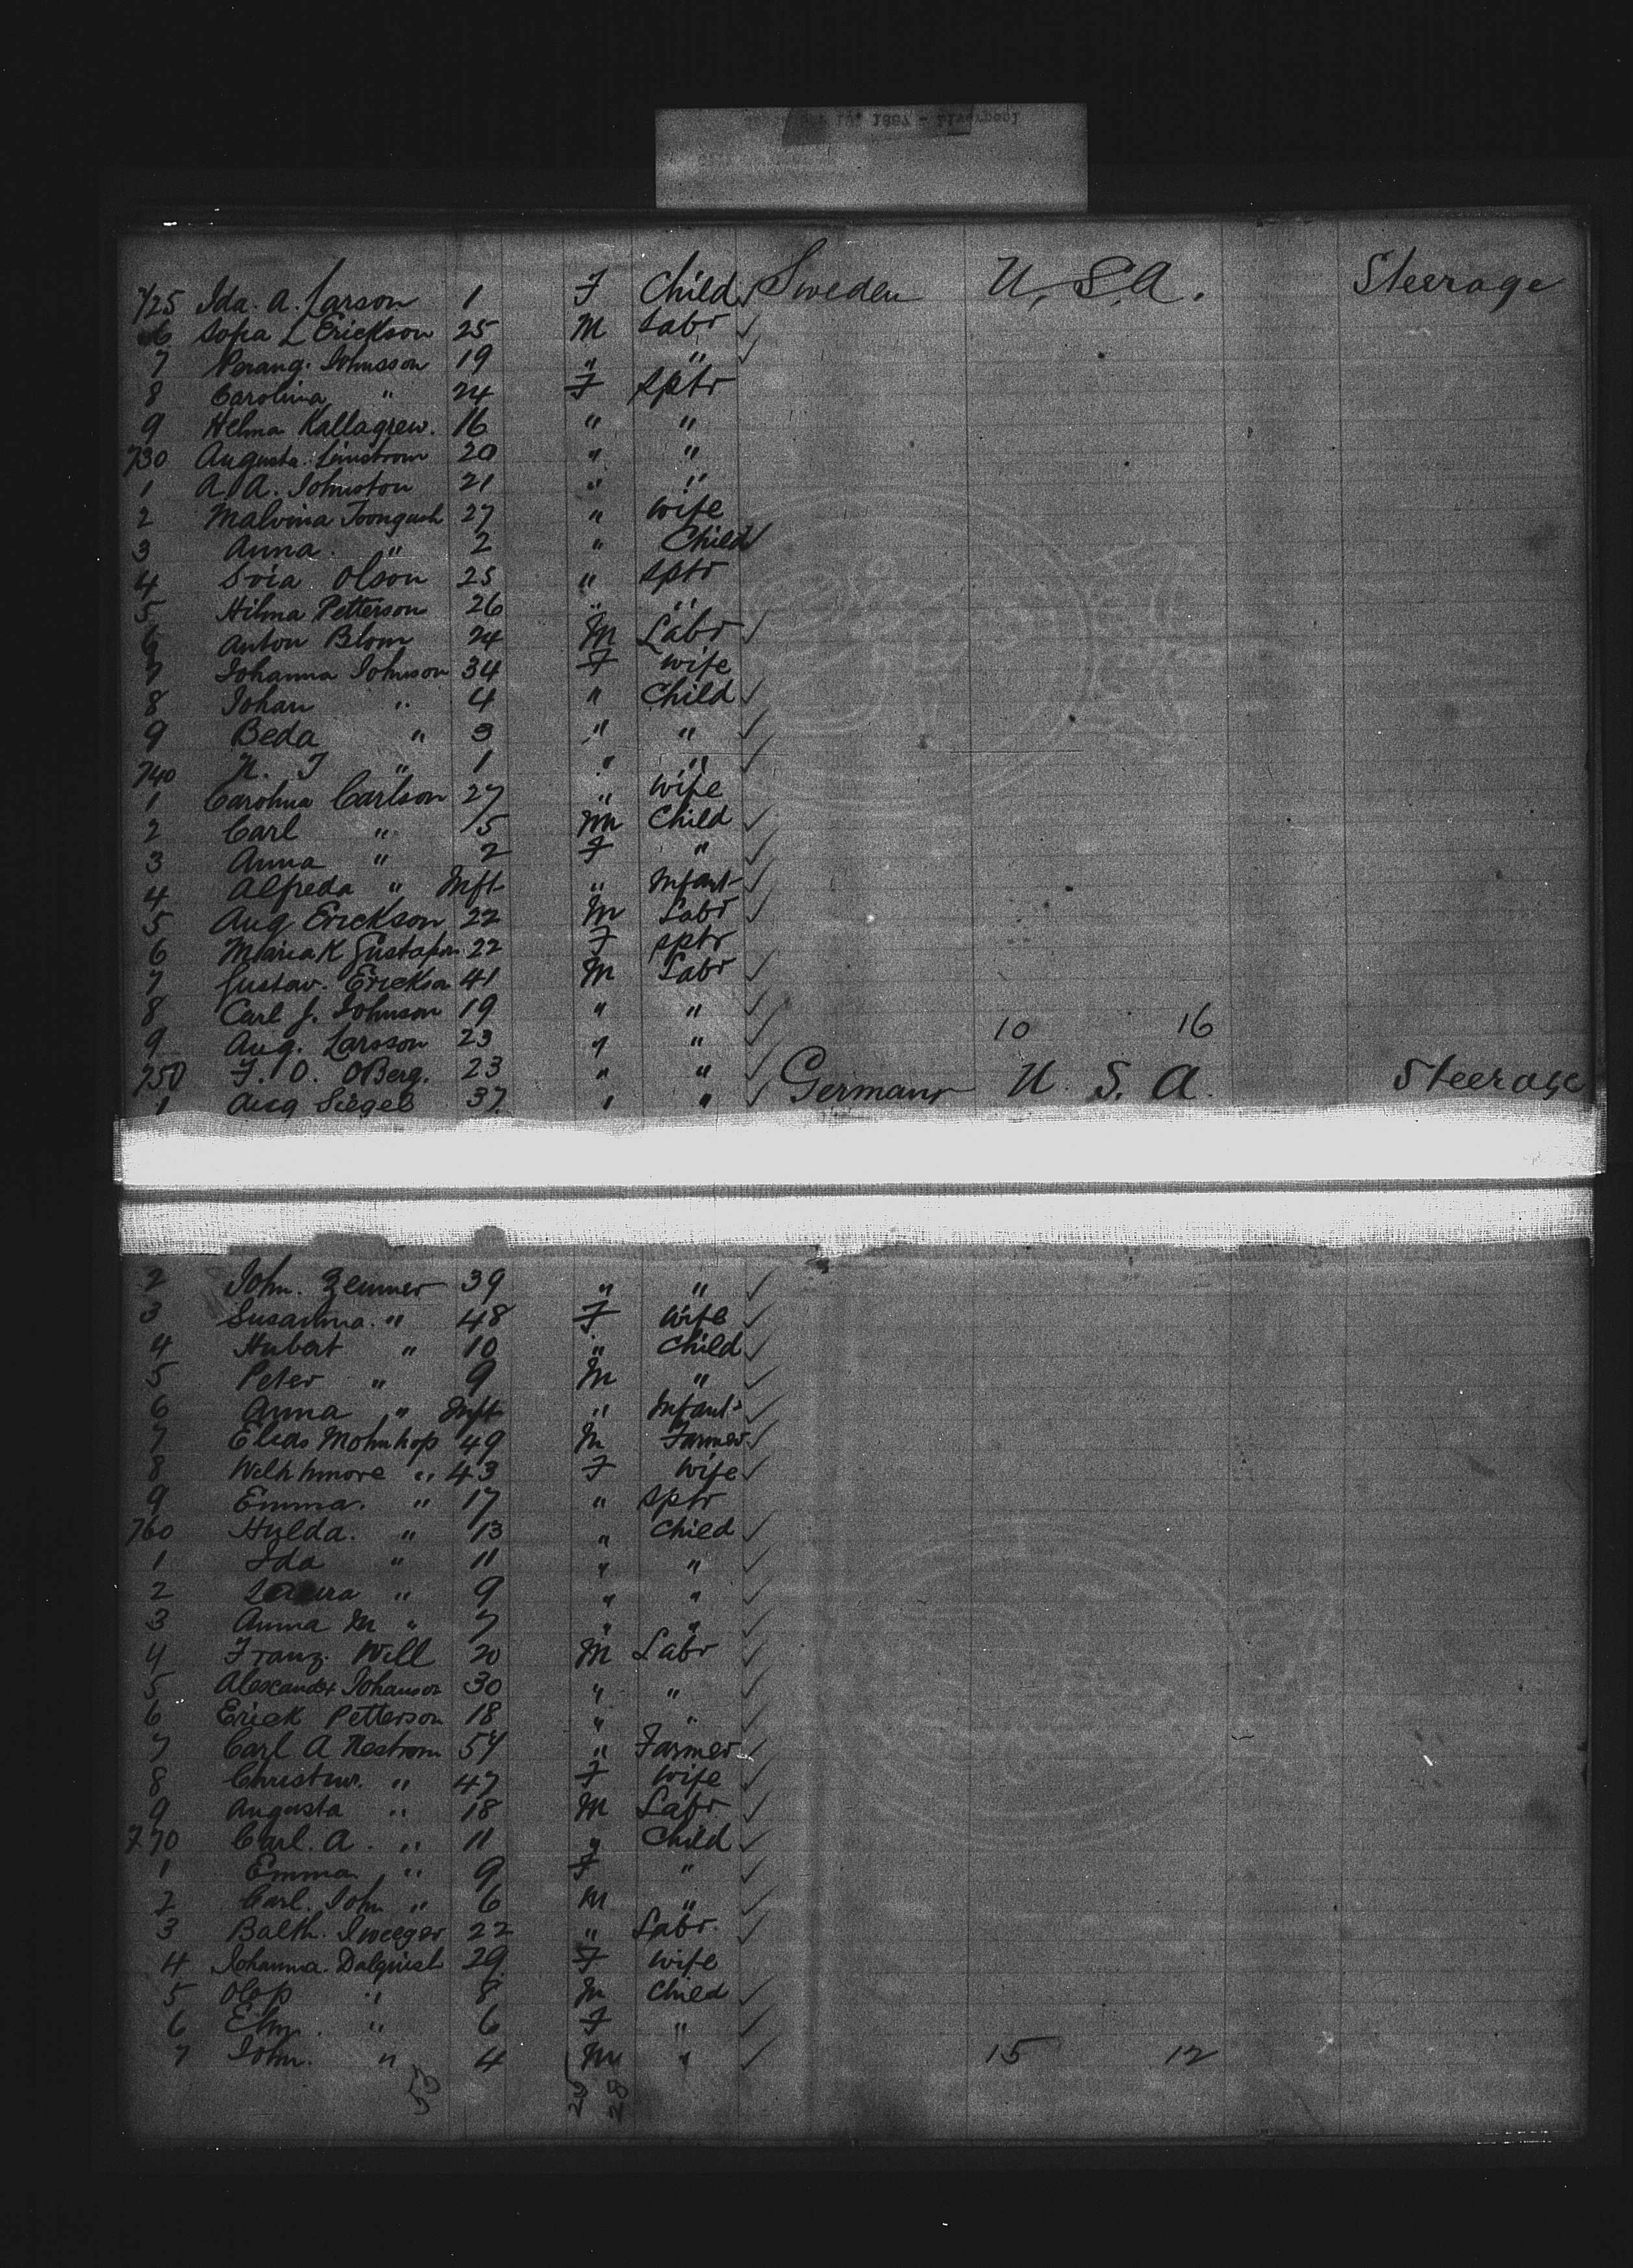 1887 - Liverpool
725 Ida. A. Larson 1 F Child Sweden U.S.A. Steerage
6 Sofia L Erickson 25 M Labr
7 Johnsson 19 " "
8 Carolina " 24 F Sptr
9 Helma Kallagrew. 16 " "
730 Augusta. Linstrom 20 " "
1 A. A. Johnston 21 " "
2 Malvina 27 " wife
3 Anna. " 2 " Child
4 Olson 25 " sptr
5 Hilma Petterson 26 " "
6 Anton Blom 24 M Labr
7 Johanna Johnson 34 F wife
8 Johan " 4 " Child
9 Beda " 3 " "
740 " 1 " "
1 Carolina Carlson 27 " wife
2 Carl " 5 M Child
3 Anna " 2 F "
4 Alfreda " Inft " Infant
5 Aug Erickson 22 M Labr
6 Maria K Gustafson 22 F sptr
7 Gustav. Erickson 41 M Labr
8 Carl J. Johnson 19 " "
9 Aug. Larsson 23 " " 10 16
750 F. O. OBerg. 23 " "
1 Aug Siegel 37 " " Germany U.S.A. Steerage
2 John. Zemmer 39 " "
3 Susanna. " 48 F wife
4 Hubert " 10 " Child
5 Peter " 9 M "
6 Anna " Inft " Infant
7 Elias Mohnhop 49 M Farmer
8 " 43 F Wife
9 Emma. " 17 " sptr
760 Hulda. " 13 " Child
1 Ida " 11 " "
2 Laura " 9 " "
3 Anna M " 7 " "
4 Franz. Will 20 M Labr
5 Alexander Johanson 30 " "
6 Erick Petterson 18 " "
7 Carl A Nestrom 54 " Farmer
8 " 47 F Wife
9 Augusta " 18 M Labr
770 Carl. A. " 11 " Child
1 Emma " 9 F "
2 Carl. John " 6 M "
3 Balth. 22 " Labr.
4 Johanna. Dalquist 29 F wife
5 Olof " 8 M Child
6 " 6 F "
7 John. " 4 M " 15 12
53 28